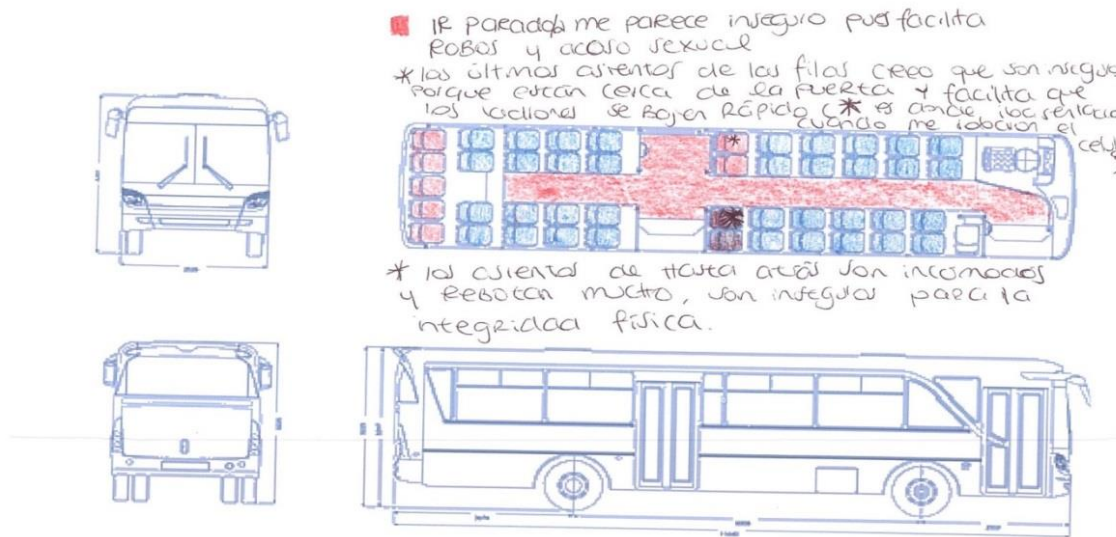 IR parad@ me parece inseguro pues facilita
ROBOS y acoso sexual
* los últimos asientos de las filas creo que son insegu
porque están cerca de la puerta y facilita que
los ladrones se bajen rápido (* es donde iba sentada
cuando me robaron el
celu
* los asientos de Hasta atrás son incomodos
y REBOTAN mucho, son inseguros para la
integridad física.